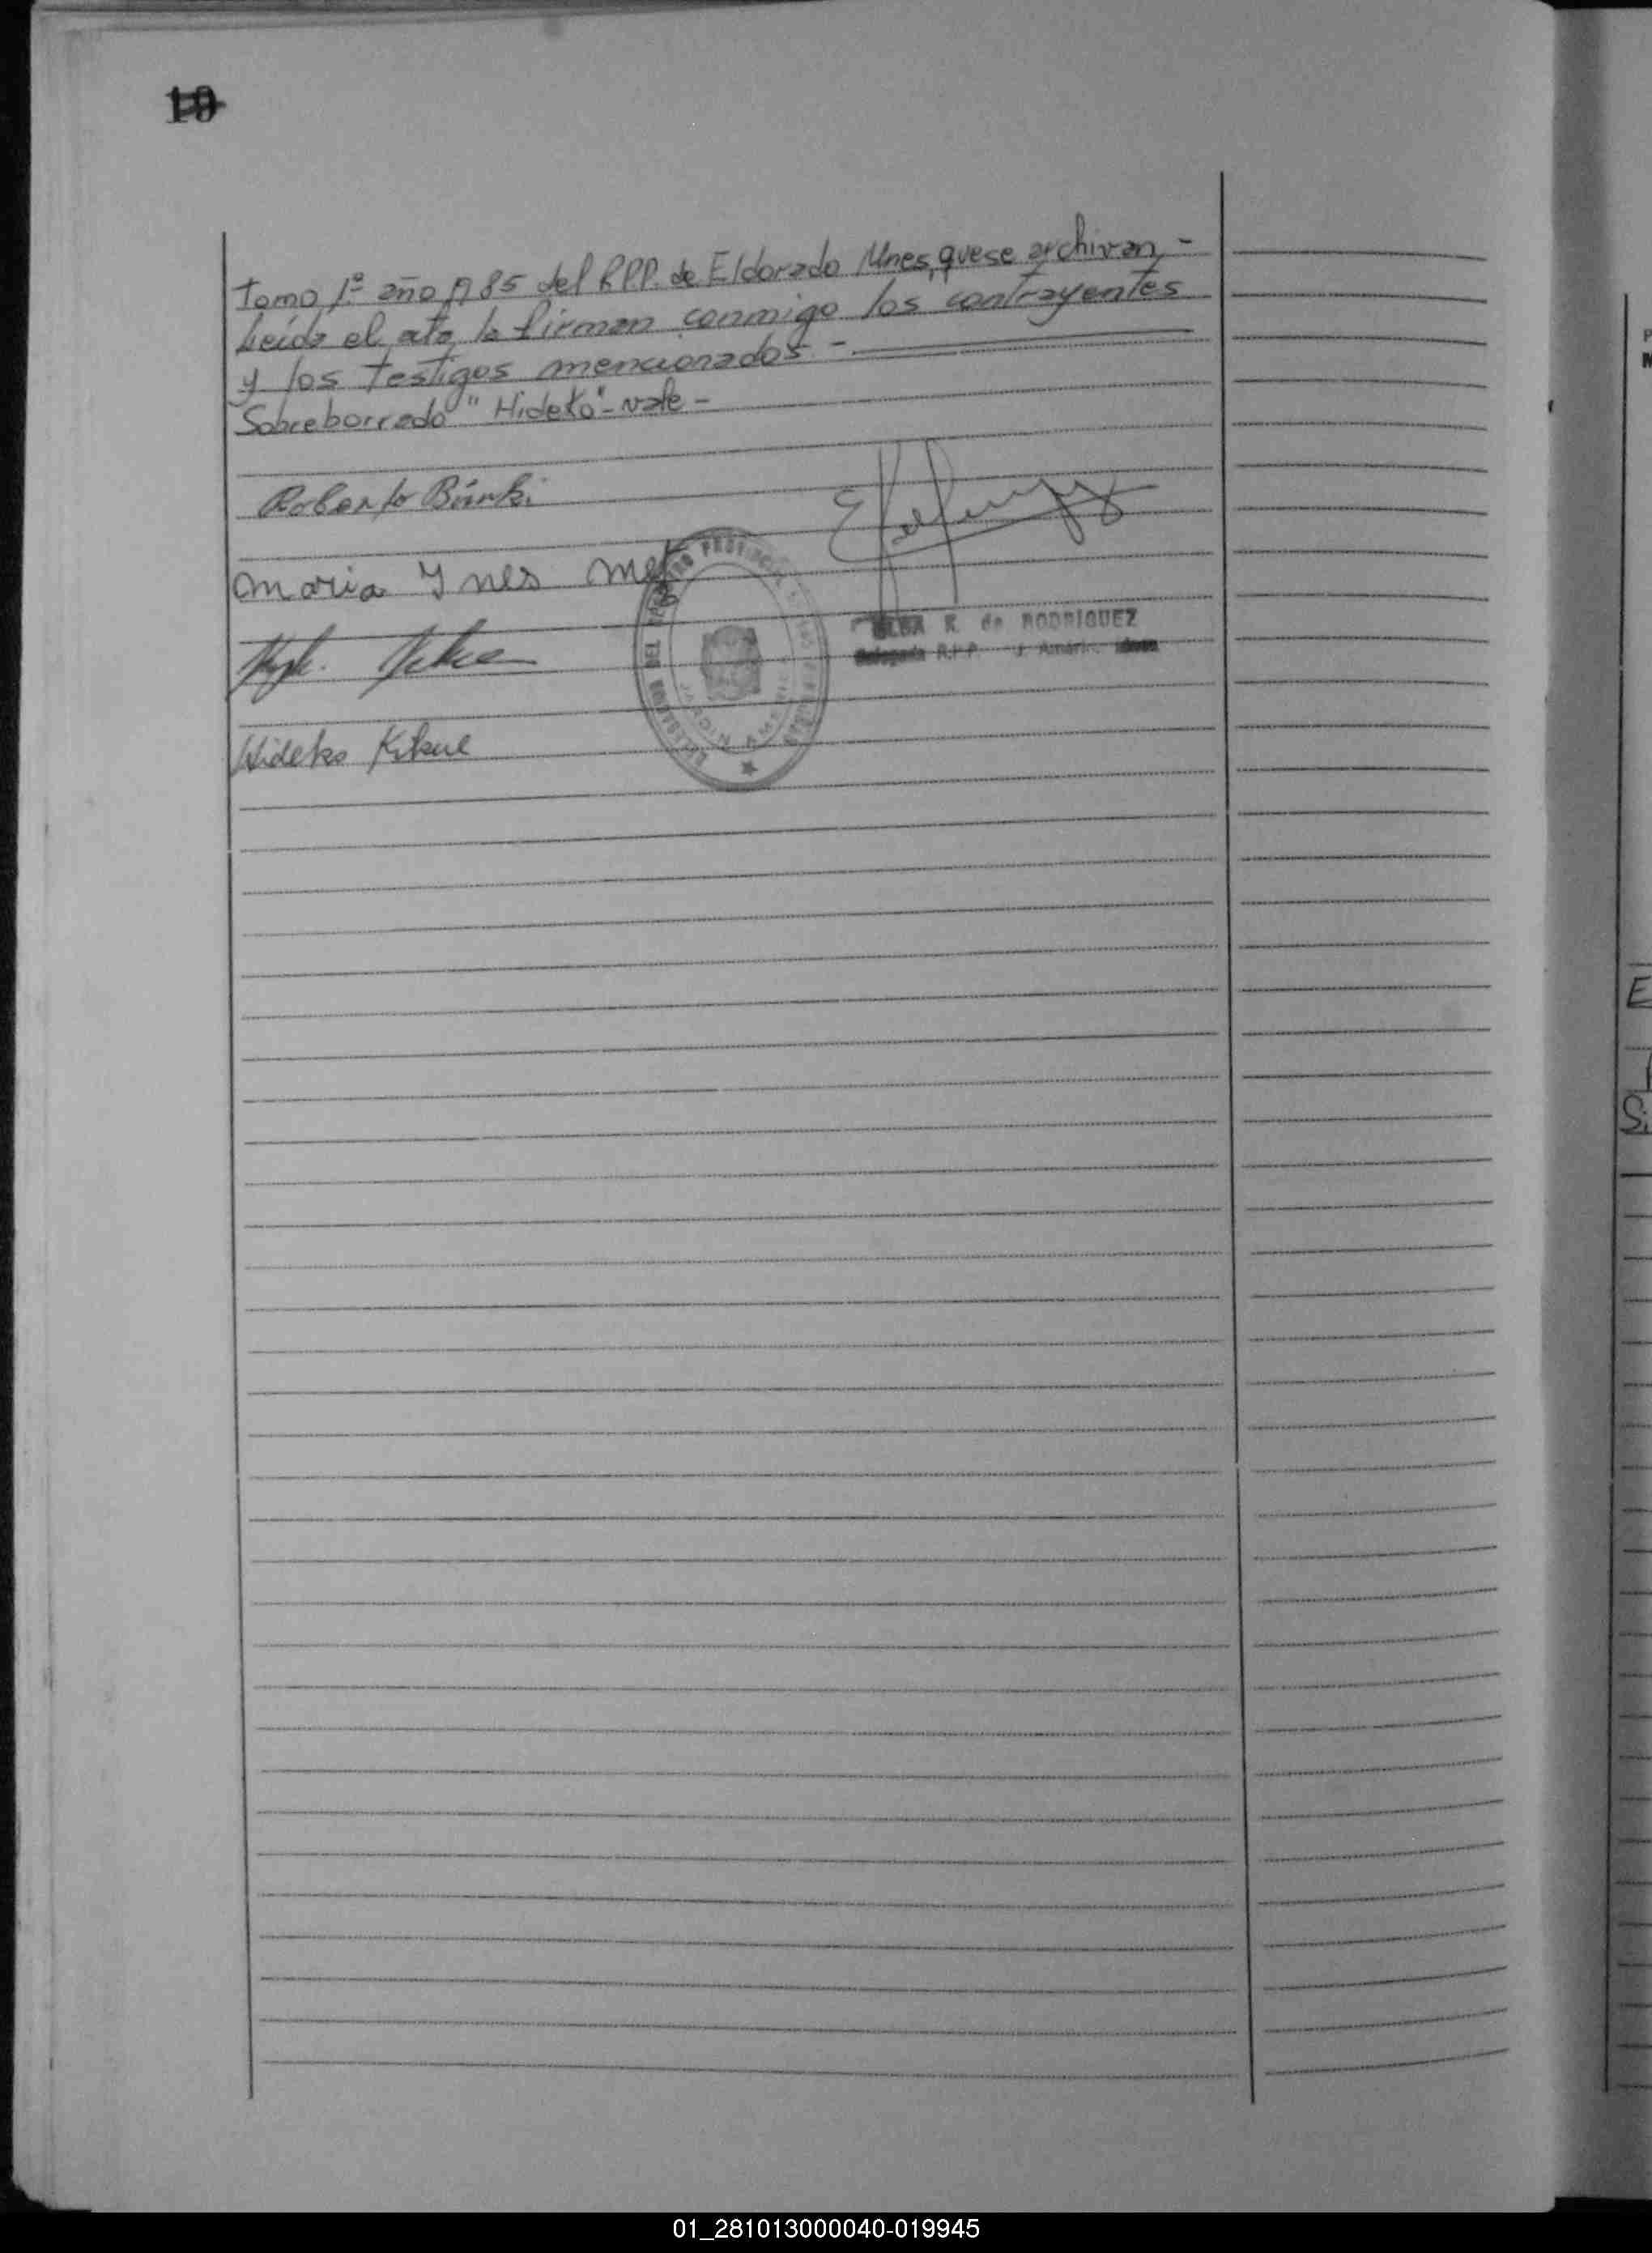 19
Tomo 1º año 1985 del R.P.P. de Eldorado Mnes, que se archivan, -
Leída el acta la firman conmigo los contrayentes
y los testigos mencionados. -
Sobreborrado "Hideko" - vale -
Roberto
Maria Ynes
Hideko Kikue
DEL REGISTRO PROVINCIAL
JARDIN AMERICA
ELBA R. de RODRIGUEZ
Delegada R.P.P. J. América
E
S
01_281013000040-019945